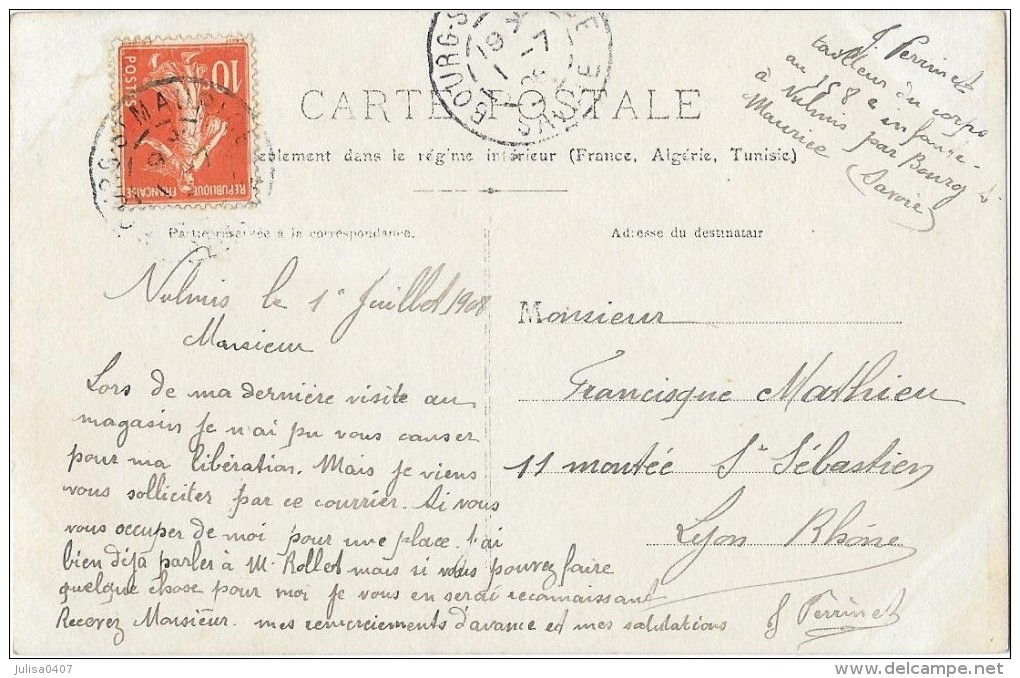 10
POSTES
REPUBLIQUE
FRANCAISE
BOURG-S
SAVOIE
CARTE POSTALE
dans le régime intérieur (France, Algérie, Tunisie)
J Perrinet
tailleur du corps
au 158e infante-
à Vulmis par Bourg St
Maurice
(Savoie)
Partie réservée à la correspondance.
Adresse du destinatair
Vulmis le 1e Juillet 1908
Monsieur
Lors de ma dernière visite au
magasin je n'ai pu vous causer
pour ma libération. Mais je viens
vous solliciter par ce courrier. Si vous
vous occuper de moi pour une place. J'ai
bien déjà parler à Mr Rollet mais si vous pouvez faire
quelque chose pour moi je vous en serai reconnaissant
Recevez Monsieur mes remerciements d'avance et mes salutations
J Perrinet
Monsieur
Francisque Mathieu
11 montée St Sébastien
Lyon Rhône
julisa0407
delcampe.net